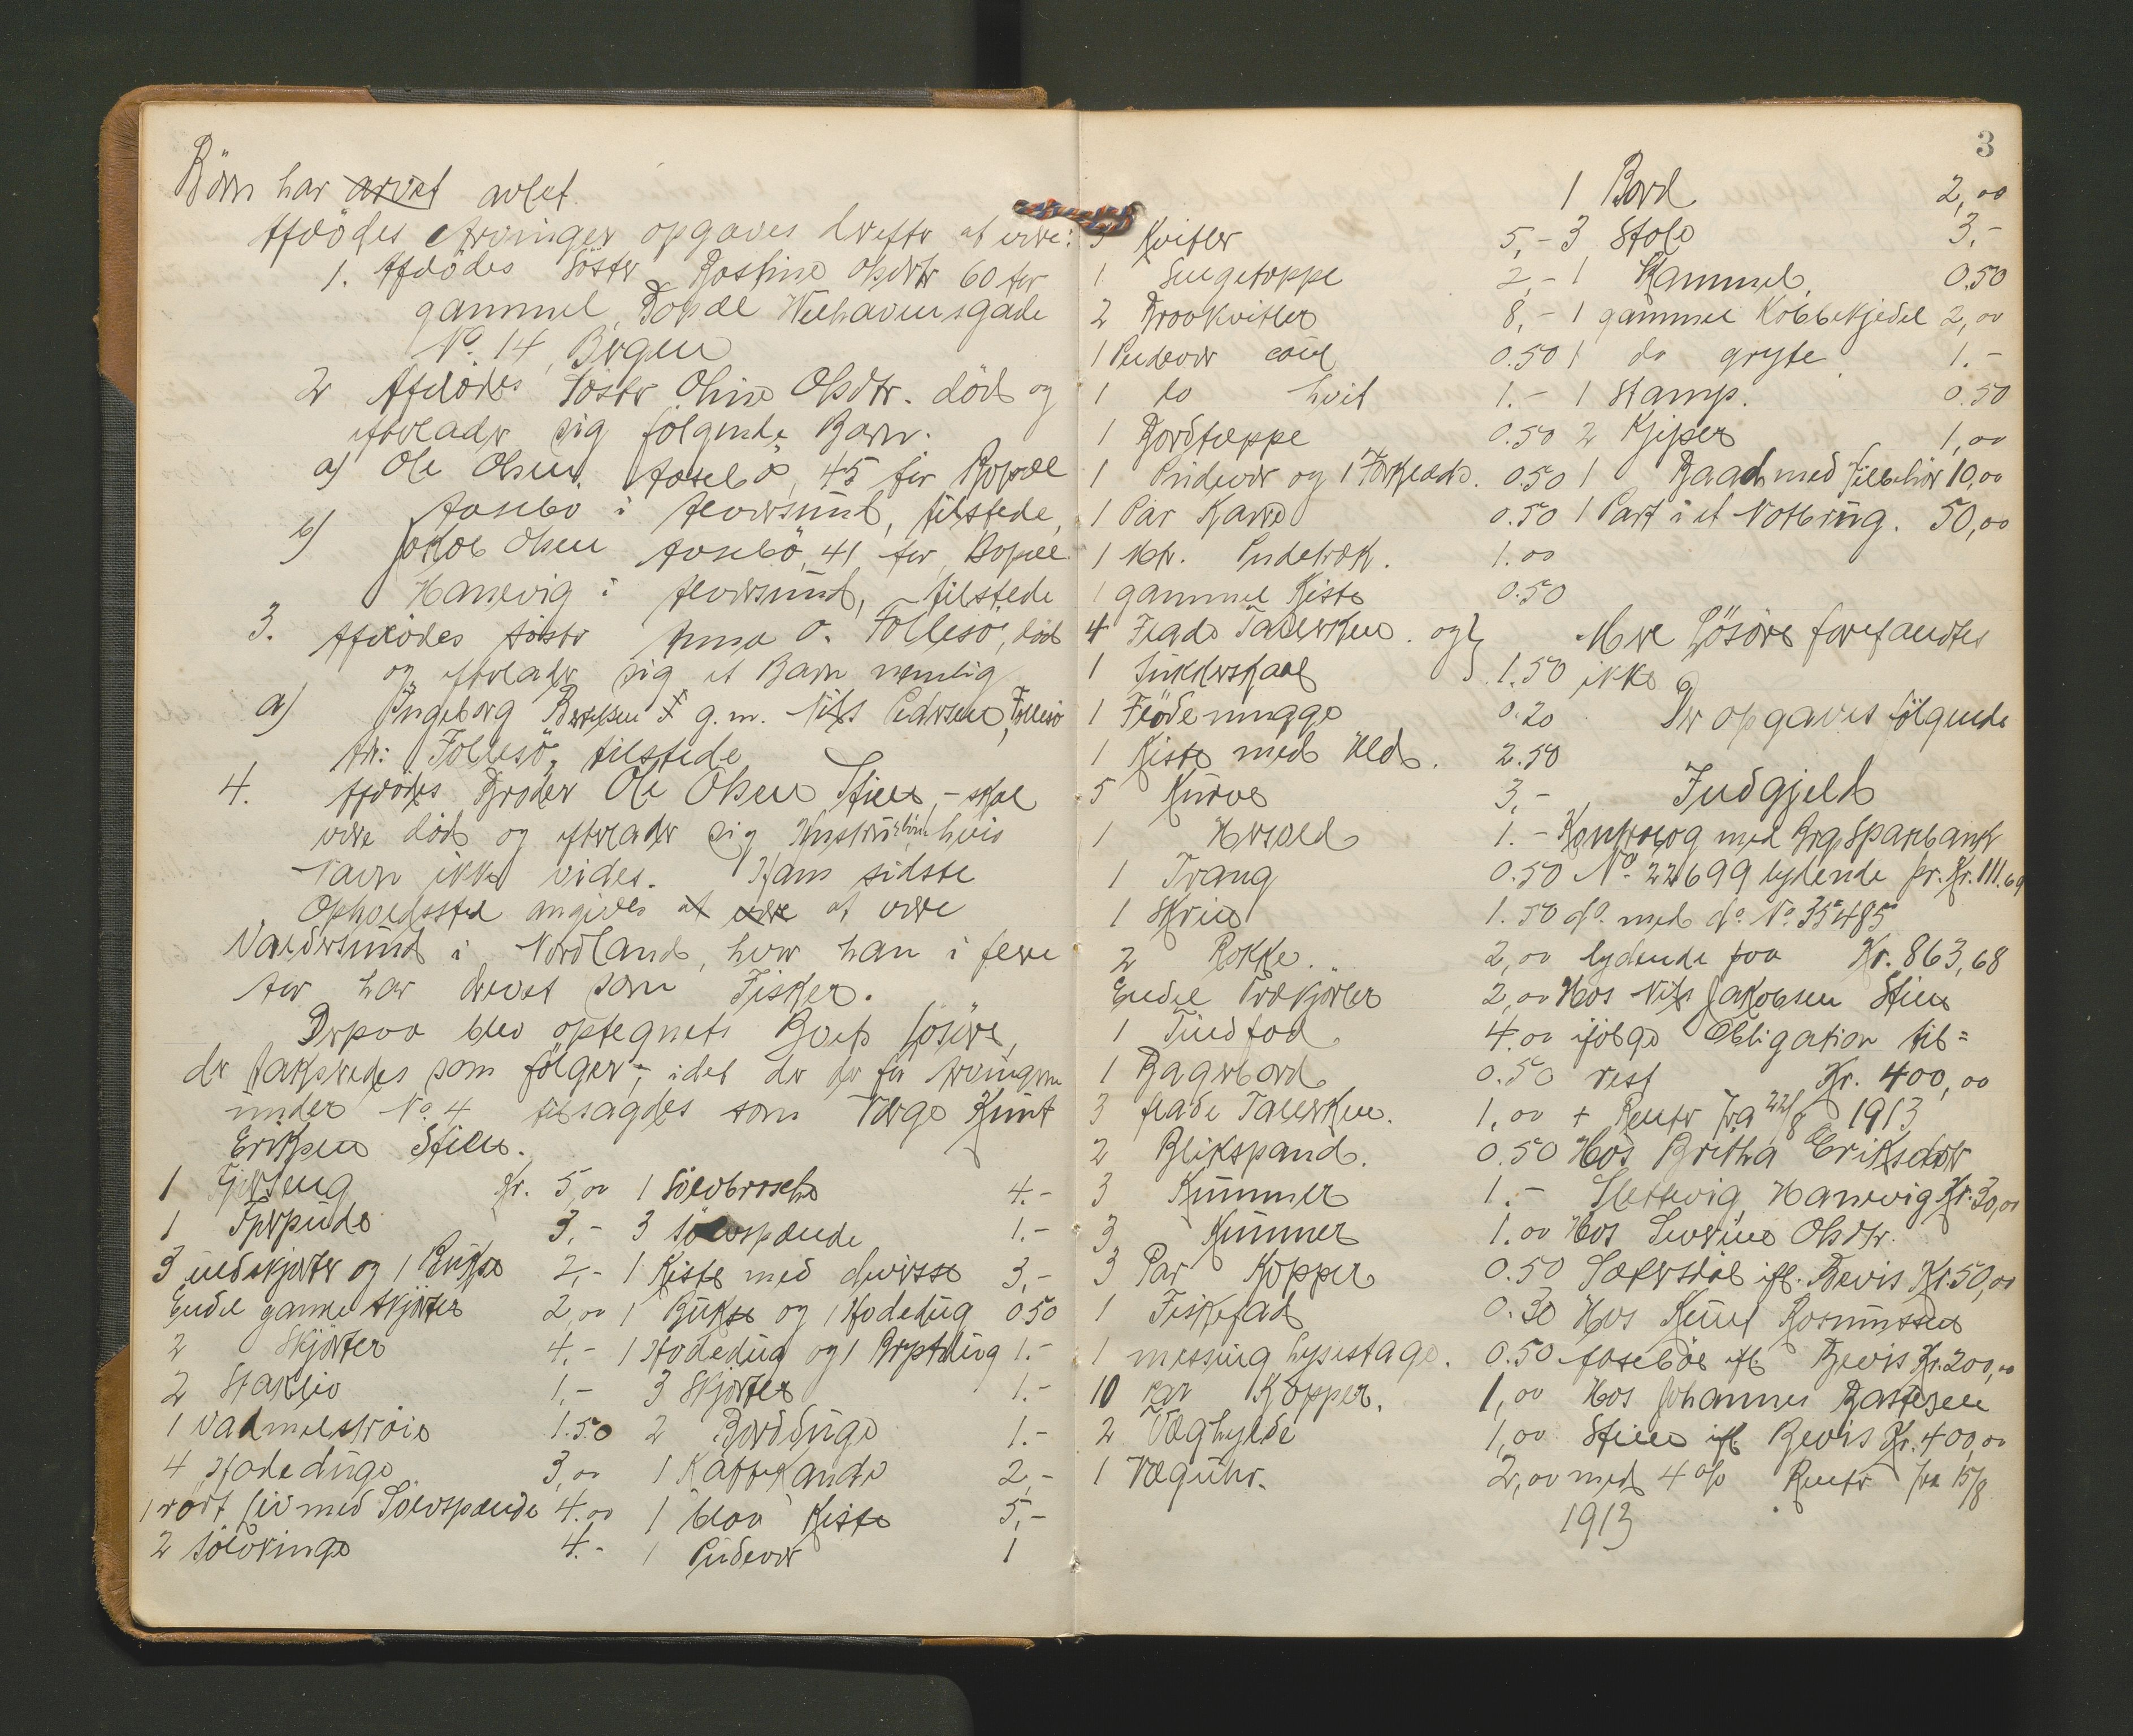 Börn har arvet avlet.
Afdödes Arvinger opgaves derefter at være:
1. Afdödes Söster Bastine Olsdtr 60 Aar
gammel, Bopæl Welhavensgade
No. 14, Bergen
2 Afdödes Söster Oline Olsdtr. död og
efterlader sig følgende Barn.
a) Ole Olsen Aasebö, 45 Aar Bopæl
Aasebø i Alversund, tilstede,
b) Jakob Olsen Aasebö, 41 Aar, Bopæl
Hanevig i Alversund, tilstede
3. Afdödes söster Anna O. Follesö, död
og efterlader sig et Barn nemlig
a) Ingeborg g. m. Nils Follesö
Follesö, tilstede
4. Afdödes Broder Ole Olsen Stien, - skal
være död og efterlader sig Hustru hvis
Navn ikke vides. Hans sidste
Opholdssted angives at være at være
Valdersund i Nordland, hvor han i flere
Aar har drevet som Fisker.
Derpaa blev optegnets Boets Lösöre,
der taksredes som fölger -, idet der for Arvingerne
under No. 4 tilsagdes som Værge Knut
Eriksen Stien.
1 Fjærseng Kr. 5,00 1 Sölvbrosche 4.-
1 Fjærpude 3,- 3 sölvspænde 1.-
3 undskjorter og 1 Bukse 2,- 1 Kiste med diverse 3,-
Endel gamle skjorter 2,00 1 Bukse og 1 Hodedug 0 50
2 Skjorter 4.- 1 Hodedug og 1 Brystdug 1.-
2 Stakliv 1,- 3 Skjorter 1.-
1 Vadmelströie 1.50 2 Bordduge 1.-
4 Hodeduge 3,00 1 Kaffekande 2,-
1 rört liv med Sölvspænde 4.00 1 blaa Kiste 5,-
2 sölvringe 4.- 1 Pudevar 1
3
3 Kvitler 5,-
1 Sengetæppe 2,-
2 Kvitler 8,-
1 Pudevar 0.50
1 do hvit 1.-
1 Bordtæppe 0.50
1 Pudevar og 1 0.50
1 Par Karre 0.50
1 Pudetræk. 1.00
1 gammel Kiste 0.50
4 Flade Talerken. og
1 Sukkerskaal 1.50
1 Flödemugge 0.20
1 Kiste med Uld. 2.50
5 Kurve 3,-
1 1.-
1 Trang 0.50
1 Skrin 1.50
2 Rokke 2,00
Endel Trækjorler 2,00
1 4.00
1 Bagerbord 0.50
3 flade Talerken. 1,00
2 Blikspand. 0.50
3 Kummer 1.-
3 Kummer 1.00
3 Par Kopper 0.50
1 Fiskefad 0.30
1 messing Lysestage. 0.50
10 par Kopper. 1,00
2 Væghylde 1,00
1 Væguhr. 2,00
1 Bord 2,00
3 Stole 3,-
1 Kommel 0.50
1 gammel Kobbekjedel 2,00
1 do gryte 1.-
1 Stamp. 0.50
2 Kjiper 1,00
1 Baad med Tilbehör 10,00
1 Part i et Notbrug. 50,00
Mere Lösöre forefandtes
ikke
Der opgaves fölgende
Indgjeld
Kontrabog med Brg. Sparebank
No. 22699 lydende pr. Kr. 111.69
do. med do. No. 35485
lydende paa Kr. 863,68
Hos Nils Jakobsen Stien
ifölge Obligation til=
rest Kr. 400,00
+ Renter fra 22/8 1913
Hos Britha Eriksdtr
Slettevig, Hanevig Kr. 30,00
Hos Severine Olsdtr.
Sætersdal ifl. Bevis Kr. 50,00
Hos Knut Rasmussen
Aasebö ifl. Bevis Kr. 200,00
Hos Johannes Bastesen
Stien ifl. Bevis Kr. 400,00
med 4 o/o Renter fra 15/8
1913